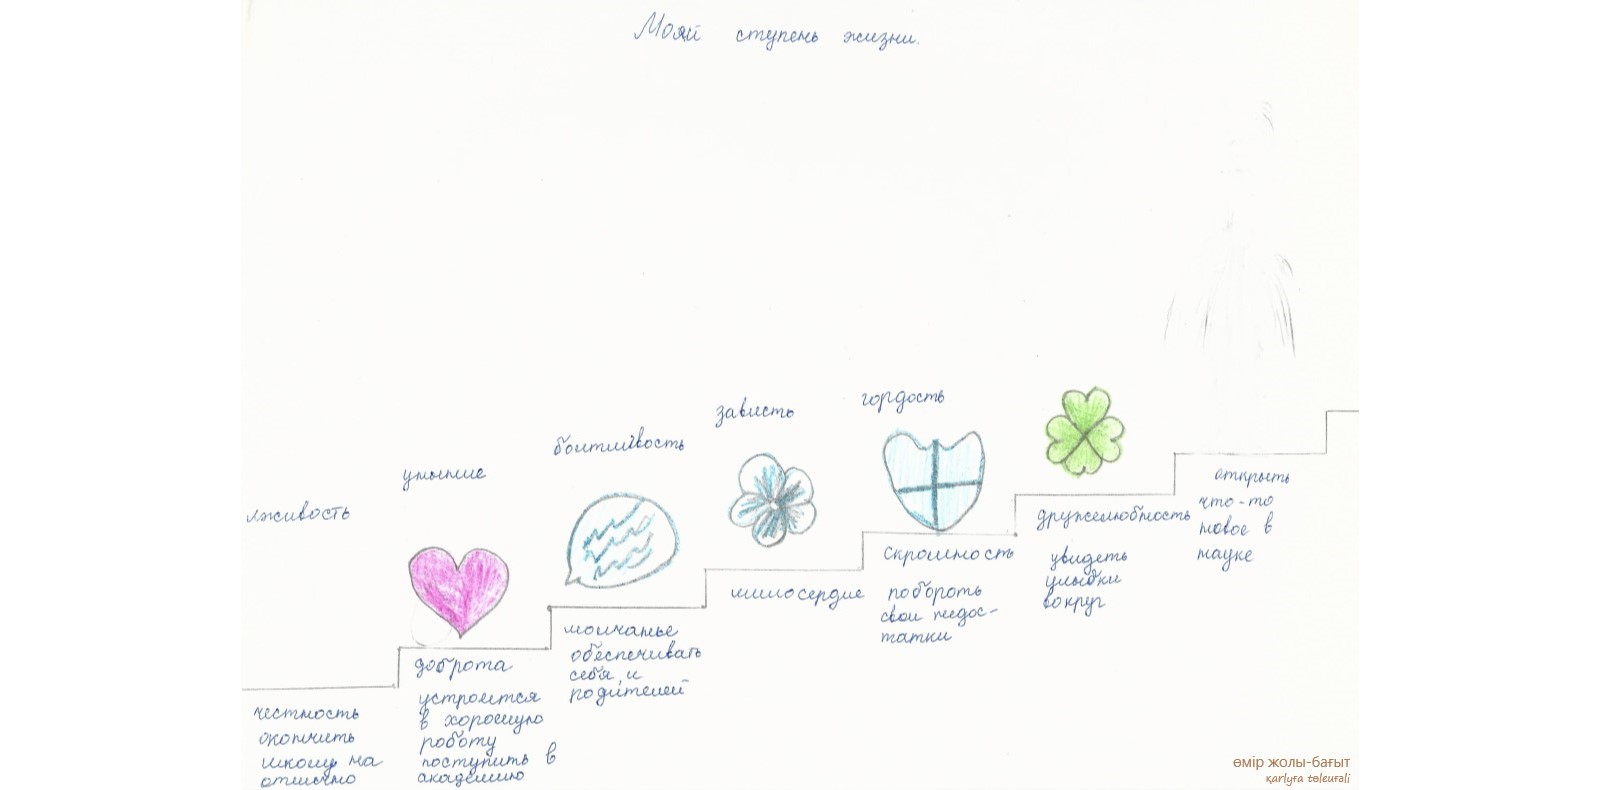 Мояй ступень жизни.
лживость
честность
окончить
школу на
отлично
уныние
доброта
устроится
в хорошую
роботу
поступить в
академию
болтливость
молчанье
обеспечивать
себя и
родителей
зависть
милосердие
гордость
скромность
побороть
свои недос-
татки
дружелюбность
увидеть
улыбки
вокруг
открыть
что-то
новое в
науке
өмір жолы-бағыт
қarlyға tөleuғali